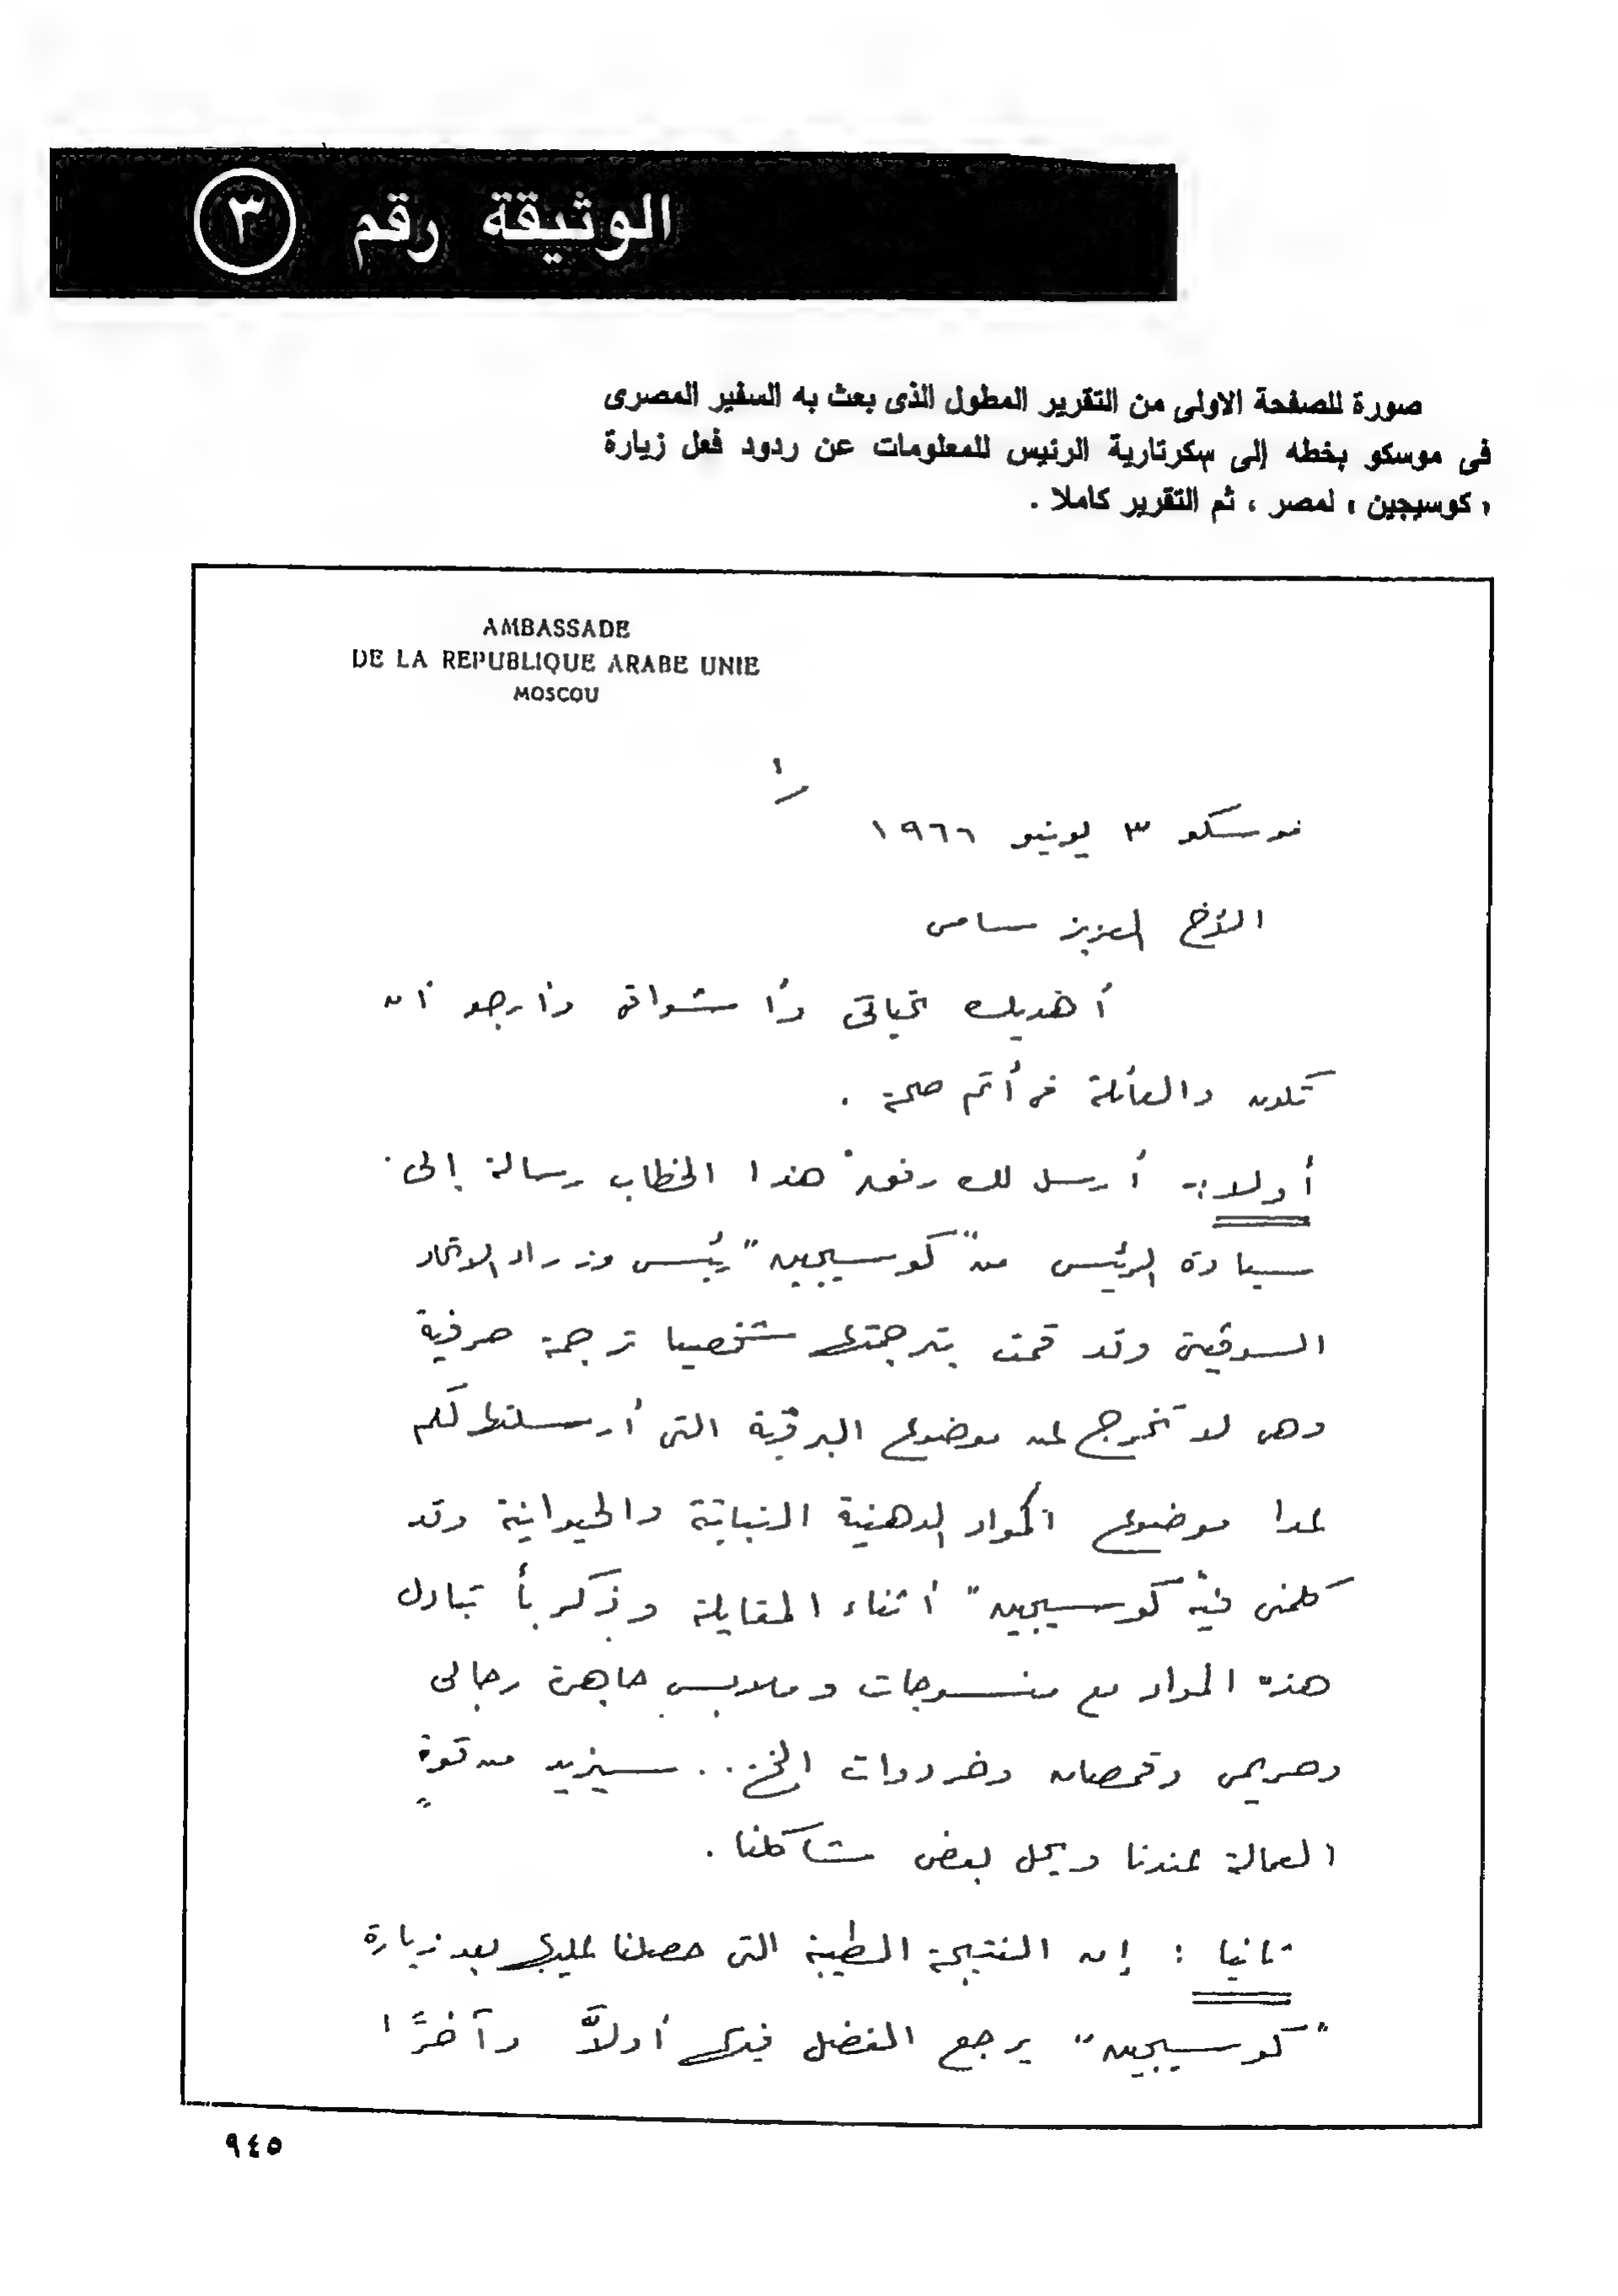 الوثيقة رقم ٣
صورة للصفحة الاولى من التقرير المطول الذى بعث به السفير المصرى
فى موسكو بخطه إلى سكرتارية الرئيس للمعلومات عن ردود فعل زيارة
« كوسيجين » لمصر ، ثم التقرير كاملا .
AMBASSADE
DE LA REPUBLIQUE ARABE UNIE
MOSCOU
موسكو ٣ يونيو ١٩٦٦
الأخ العزيز سامى
أهديك تحياتى وأشواقى وأرجو أن
تكون والعائلة فى أتم صحة .
أولا :- أرسل لك رفق هذا الخطاب رسالة إلى
سيادة الرئيس من "كوسيجين" رئيس وزراء الاتحاد
السوفيتى وقد قمت بترجمتها شخصيا ترجمة حرفية
وهى لا تخرج عن موضوع البرقية التى أرسلتها لكم
عدا موضوع المواد الدهنية النباتية والحيوانية وقد
كلمنى فيه "كوسيجين" أثناء المقابلة وذكر بأ تبادل
هذه المواد مع منسوجات وملابس جاهزة رجالى
وحريمى وقمصان وخردوات الخ .. سيزيد من قوة
العمالة عندنا ويحل بعض مشاكلنا .
ثانيا : إن النتيجة الطيبة التى حصلنا عليها بعد زيارة
"كوسيجين" يرجع الفضل فيها أولاً وآخرًا
٩٤٥